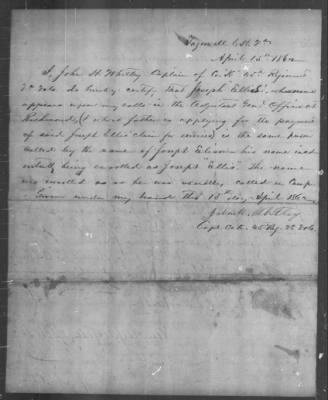 Tazewell C.H. Va.
April 15th 1862
I, John H. Whitley Captain of Co. "K" 45th Regiment
Va Vols. do hereby certify that Joseph Ellis, whose name
appears upon my rolls in the Adjutant Genl Office at
Richmond, (& whose father is applying for the payment
of said Joseph Ellis claim for service) is the same person
called by the name of Joseph his name
being enrolled as Joseph "Ellis". The name
was enrolled as he was usually called in Camp.
Given under my hand this 15th day April 1862
John H. Whitley
Capt. Co K. 45 Reg. Va Vols.